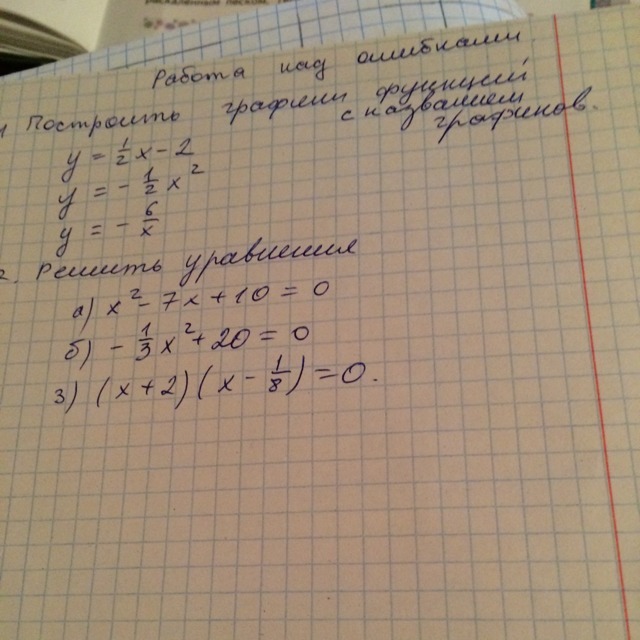 раскалённым песком,
Работа над ошибками
1 Построить графики функций
с названием
графиков.
y = 1/2 x - 2
y = - 1/2 x²
y = - 6/x
2. Решить уравнения
а) x² - 7x + 10 = 0
б) - 1/3 x² + 20 = 0
з) (x + 2)(x - 1/8) = 0.